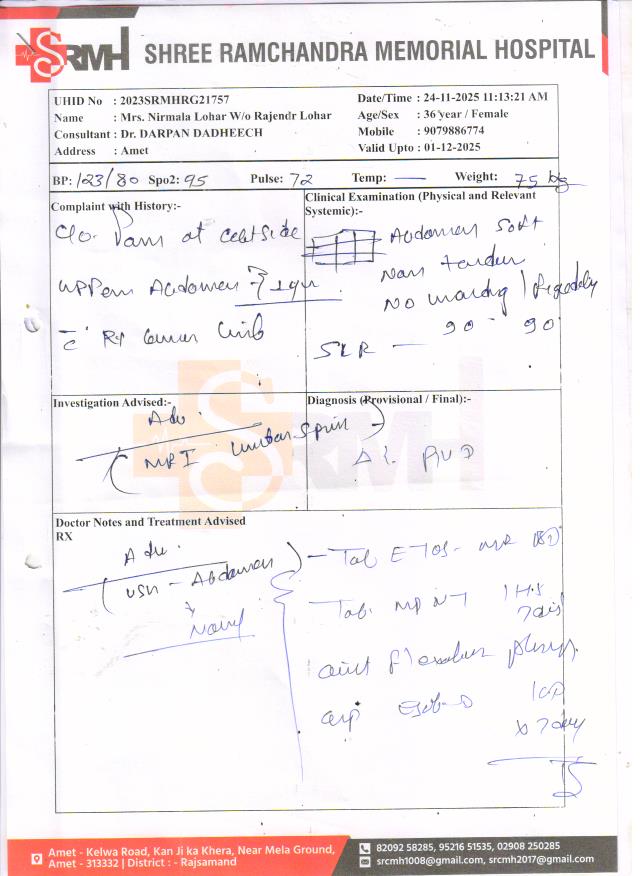 SRMH SHREE RAMCHANDRA MEMORIAL HOSPITAL
UHID No : 2023SRMHRG21757
Name : Mrs. Nirmala Lohar W/o Rajendr Lohar
Consultant : Dr. DARPAN DADHEECH
Address : Amet
Date/Time : 24-11-2025 11:13:21 AM
Age/Sex : 36 year / Female
Mobile : 9079886774
Valid Upto : 01-12-2025
BP: 123/80 Spo2: 95 Pulse: 72 Temp: — Weight: 75 kg
Complaint with History:-
C/o. Pain at
Upper Abdomen
Clinical Examination (Physical and Relevant Systemic):-
Abdomen Soft
Non tender
No
SLR — 90 - 90
Investigation Advised:-
Adv.
MRI
Diagnosis (Provisional / Final):-
Doctor Notes and Treatment Advised
RX
Adv.
USG - Abdomen
Tab E TOS - MR BD
Tab. 1 HS
7 days
cap
x 7 day
SRMH
Amet - Kelwa Road, Kan Ji ka Khera, Near Mela Ground,
Amet - 313332 | District : - Rajsamand
82092 58285, 95216 51535, 02908 250285
srcmh1008@gmail.com, srcmh2017@gmail.com